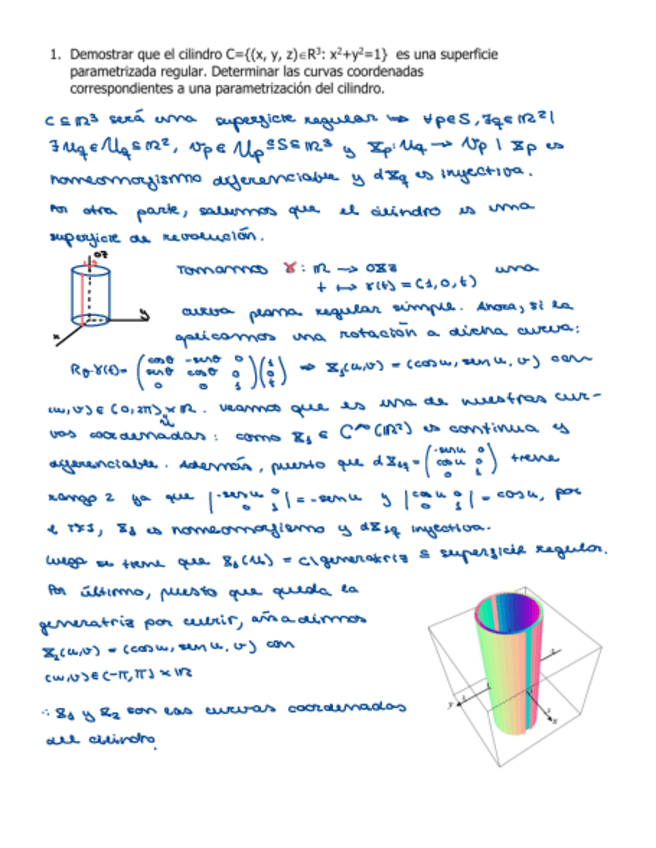 1. Demostrar que el cilindro C={(x, y, z)∈R³: x²+y²=1} es una superficie
parametrizada regular. Determinar las curvas coordenadas
correspondientes a una parametrización del cilindro.
C ⊆ ℝ³ será una superficie regular ⟺ ∀p∈S, ∃q∈ℝ² |
∃ Uq ∈ Uq ⊆ ℝ², Vp ∈ Up ⊆ S ⊆ ℝ³ y Xp: Uq → Vp | Xp es
homeomorfismo diferenciable y dXq es inyectiva.
Por otra parte, sabemos que el cilindro es una
superficie de revolución.
OZ
Tomamos γ: ℝ → OXZ una
t ↦ γ(t) = (1, 0, t)
x y
curva plana regular simple. Ahora, si le
aplicamos una rotación a dicha curva:
Rθ·γ(t) = (cosθ -senθ 0 senθ cosθ 0 0 0 1)(1 0 t) ⇒ X₁(u,v) = (cos u, sen u, v) con
(u,v) ∈ (0,2π) × ℝ. Veamos que es una de nuestras cur-
U
vas coordenadas: como X₁ ∈ C^∞(ℝ²) es continua y
diferenciable. Además, puesto que dX₁q = (-sen u 0 cos u 0 0 1) tiene
rango 2 ya que |-sen u 0 0 1| = -sen u y |cos u 0 0 1| = cos u, por
el TFI, X₁ es homeomorfismo y dX₁q inyectiva.
Luego se tiene que X₁(U) = C\generatriz ≡ superficie regular.
Por último, puesto que queda la
generatriz por cubrir, añadimos
X₂(u,v) = (cos u, sen u, v) con
(u,v) ∈ (-π, π) × ℝ
∴ X₁ y X₂ son las curvas coordenadas
del cilindro.
y
x